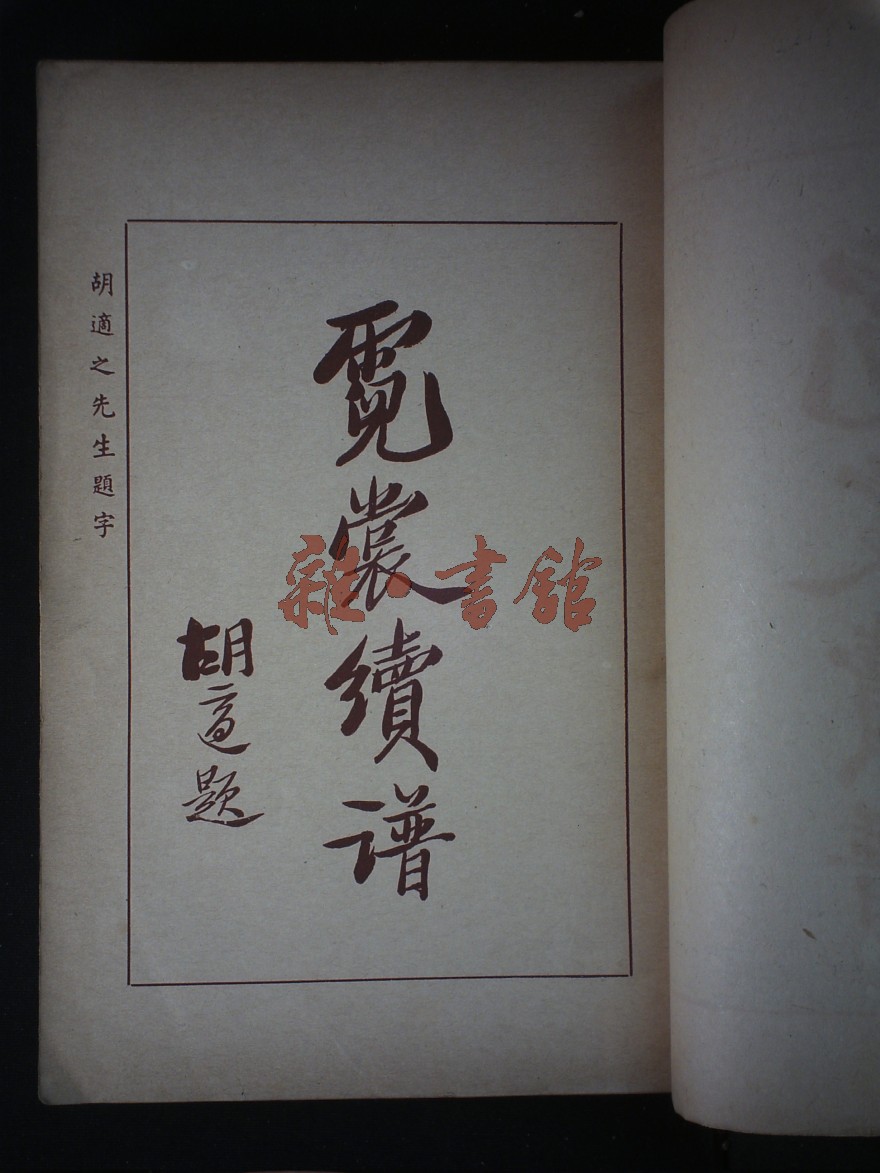 霓裳續谱
胡適題
胡適之先生題字
雜·書館